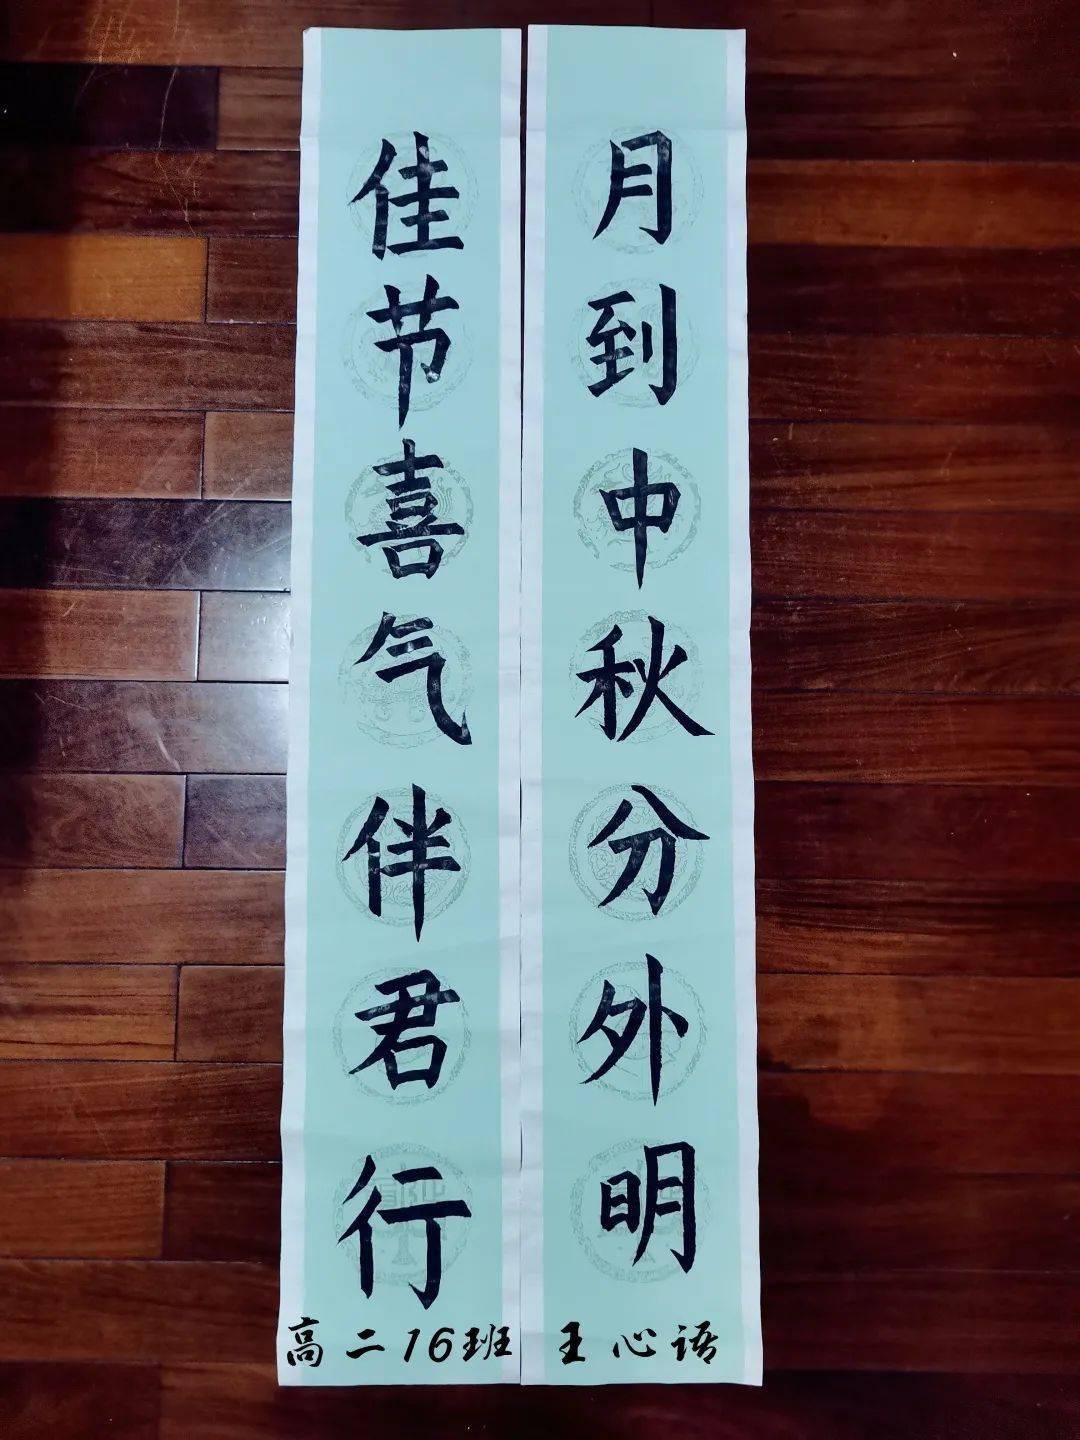 月到中秋分外明
佳节喜气伴君行
高二16班 王心语